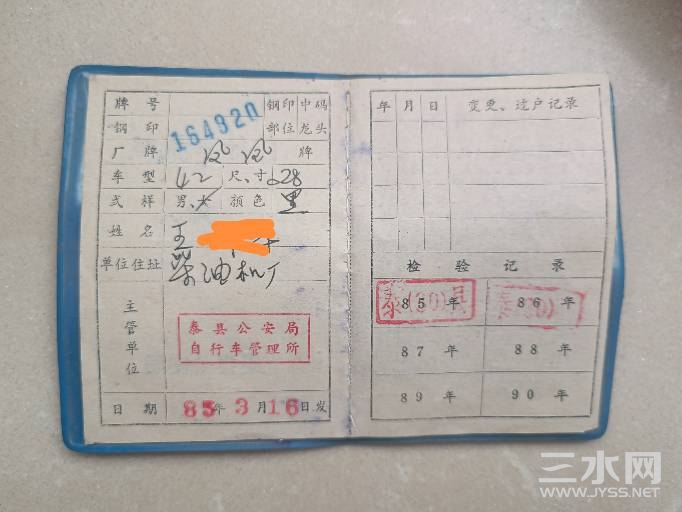 牌号 钢印 中码
钢印 164920 部位 龙头
厂牌 凤凰 牌
车型 42 尺寸 28
式样 男、女 颜色 黑
姓名 王
单位住址 柴油机厂
主管单位
泰县公安局
自行车管理所
日期 85年3月16日发
年 月 日 变更、过户记录
检验记录
85年 86年
87年 88年
89年 90年
三水网
WWW.JYSS.NET